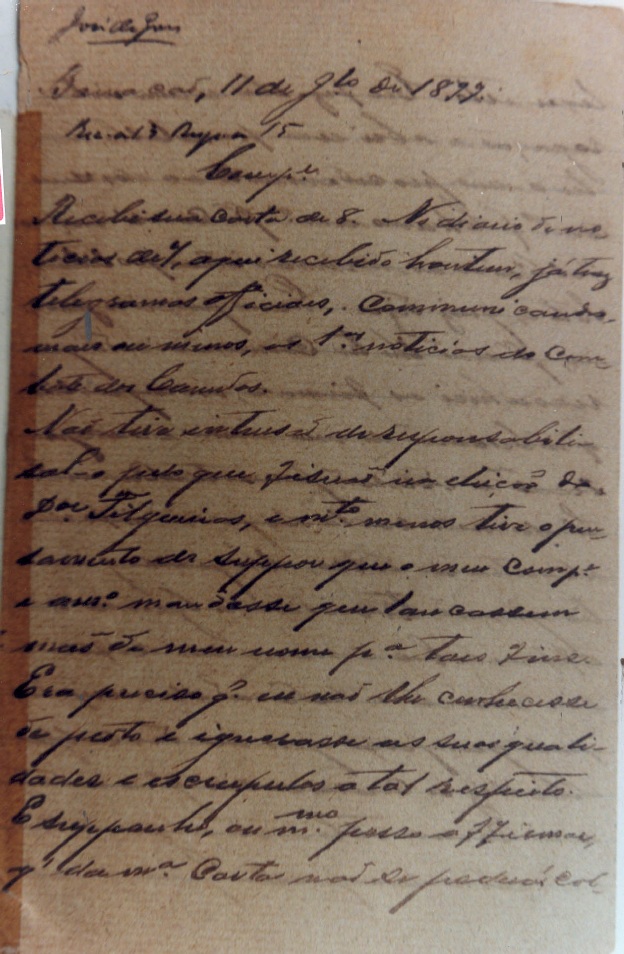 11 de 9bro de 1897.
Rec. a 13 Resp. a 15
Compe.
Recebi sua carta de 8. No diario de no-
ticias de 7, aqui recebido hontem, já traz
telegramas officiaes, communicando,
mais ou menos, as 1as noticias do Com-
bate dos Canudos.
Não tive intensão de responsabili-
sal-o pelo que fizerão na eleição do
Dor Filgueiras, e mto menos tive o pen-
samento de suppor que o meu Compe
e amo mandasse que lançassem
mão de meu nome pa taes fins.
Era preciso q. eu não lhe conhecesse
de perto e ignorasse as suas quali-
dades e escrupulos a tal respeito.
E supponho, ou mmo posso affirmar,
q' da ma Carta não se poderá col-